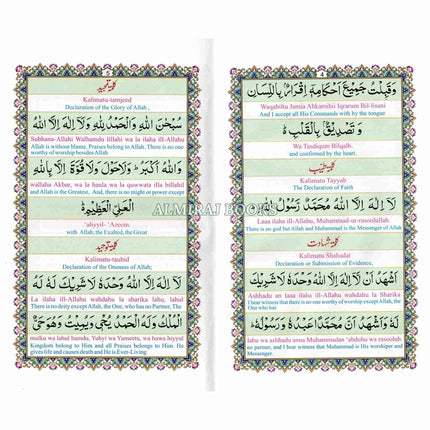 4
وَقَبِلْتُ جَمِيْعَ اَحْكَامِهٖ اِقْرَارٌۢ بِاللِّسَانِ
Waqabiltu Jamia Ahkamihii Iqrarum Bil-lisani
And I accept all His Commands with by the tongue
وَتَصْدِيْقٌۢ بِالْقَلْبِ
Wa Tasdiqum Bilqalb.
and confirmed by the heart.
کلمۂ طیّب
Kalimatu Tayyab
The Declaration of Faith
لَآ اِلٰهَ اِلَّا اللّٰهُ مُحَمَّدٌ رَّسُوْلُ اللّٰهِ
Laaa ilaha ill-Allahu, Muhammad-ur-rasoolullah.
There is no god but Allah and Muhammed is the Messenger of Allah
کلمۂ شہادت
Kalimatu Shahadat
Declaration or Submission of Evidence,
اَشْهَدُ اَنْ لَّآ اِلٰهَ اِلَّا اللّٰهُ وَحْدَهٗ لَا شَرِيْكَ
Ashhadu an laaa ilaha ill-Allahu wahdahu la Sharika
I bear witness that there is no worthy of worship except Allah, the One who has
لَهٗ وَاَشْهَدُ اَنَّ مُحَمَّدًا عَبْدُهٗ وَرَسُوْلُهٗ
lahu wa ashhadu anna Muhammadan 'abduhu wa rasooluh.
no partner, and I bear witness that Muhammad is His worshiper and Messenger.
5
کلمۂ تمجید
Kalimatu-tamjeed
Declaration of the Glory of Allah ,
سُبْحٰنَ اللّٰهِ وَالْحَمْدُ لِلّٰهِ وَلَآ اِلٰهَ اِلَّا اللّٰهُ
Subhana-Allahi Walhamdu lillahi wa la ilaha ill-Allahu
Allah is without blame, Praises belong to Allah. There is no one worthy of worship besides Allah
وَاللّٰهُ اَكْبَرُ وَلَا حَوْلَ وَلَا قُوَّةَ اِلَّا بِاللّٰهِ
wallahu Akbar, wa la haula wa la quwwata illa billahil
and Allah is the Greatest, And, there is no might or power except
الْعَلِيِّ الْعَظِيْمِ
'aliyyil- 'Azeem.
with Allah, the Exalted, the Great
کلمۂ توحید
Kalimatu-tauhid
Declaration of the Oneness of Allah;
لَآ اِلٰهَ اِلَّا اللّٰهُ وَحْدَهٗ لَا شَرِيْكَ لَهٗ لَهُ
La ilaha ill-Allahu wahdahu la sharika lahu, lahul
There is no deity except Allah, the One, who has no Partner, The
الْمُلْكُ وَلَهُ الْحَمْدُ يُحْيٖ وَيُمِيْتُ وَهُوَ حَيٌّ
mulku wa lahul hamdu, Yuhyi wa Yumeetu, wa huwa hiyyul
Kingdom belong to Him and all Praises belong to Him. He gives life and causes death and He is Ever-Living
ALMIRAJ BOOKS